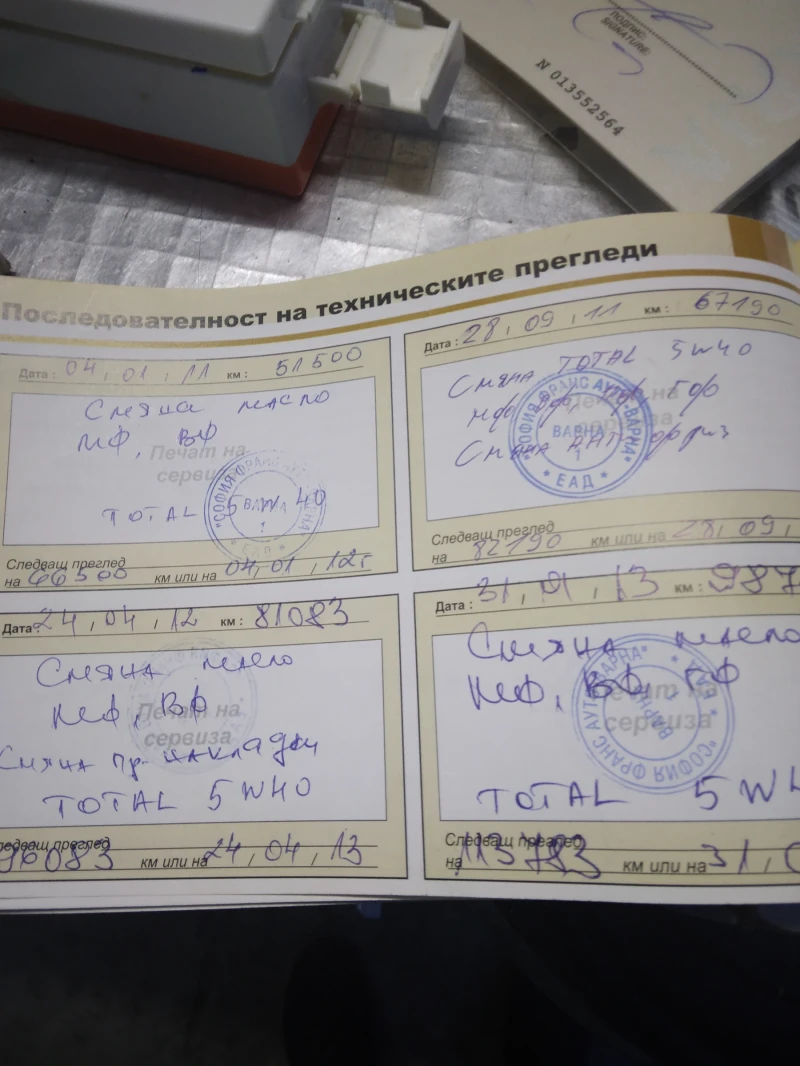 ПОДПИС:
SIGNATURE:
N 013552564
Последователност на техническите прегледи
Дата : 04, 01, 11 км : 51500
Смяна масло
МФ, ВФ
Печат на
сервиза
TOTAL 5W40
"СОФИЯ ФРАНС АУТО-ВАРНА"
ВАРНА
1
* ЕАД *
Следващ преглед
на 66500 км или на 04,01,12г
Дата : 28, 09, 11 км : 67190
Смяна TOTAL 5W40
МФ ВФ, ГФ
Смяна
"СОФИЯ ФРАНС АУТО-ВАРНА"
ВАРНА
1
* ЕАД *
Следващ преглед
на 82190 км или на 28, 09,
Дата : 24, 04, 12 км : 81083
Смяна масло
МФ, ВФ
Печат на
сервиза
Смяна пр. накладки
TOTAL 5W40
Следващ преглед
96083 км или на 24, 04, 13
Дата : 31, 01, 13 км : 987
Смяна масло
МФ, ВФ, ГФ
Печат на
сервиза
"СОФИЯ ФРАНС АУТО-ВАРНА"
ВАРНА
TOTAL 5W4
Следващ преглед
на 113783 км или на 31, 0